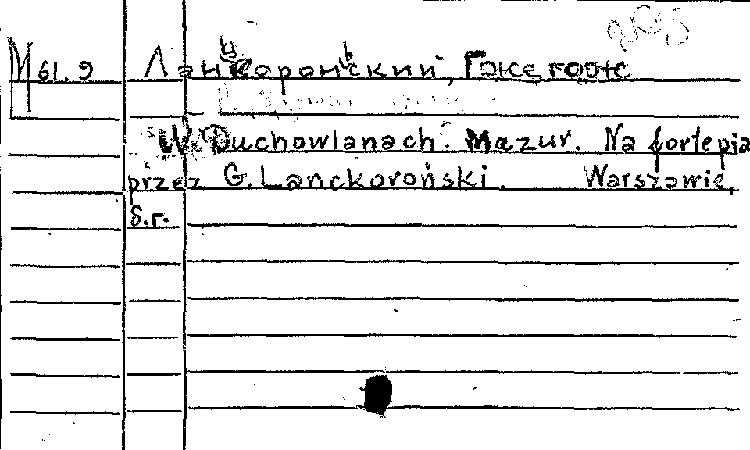 М 61.9 Ланцкороньский,
W Duchowlanach. Mazur. Na fortepia
przez G. Lanckoroński. Warszawie,
S.r.